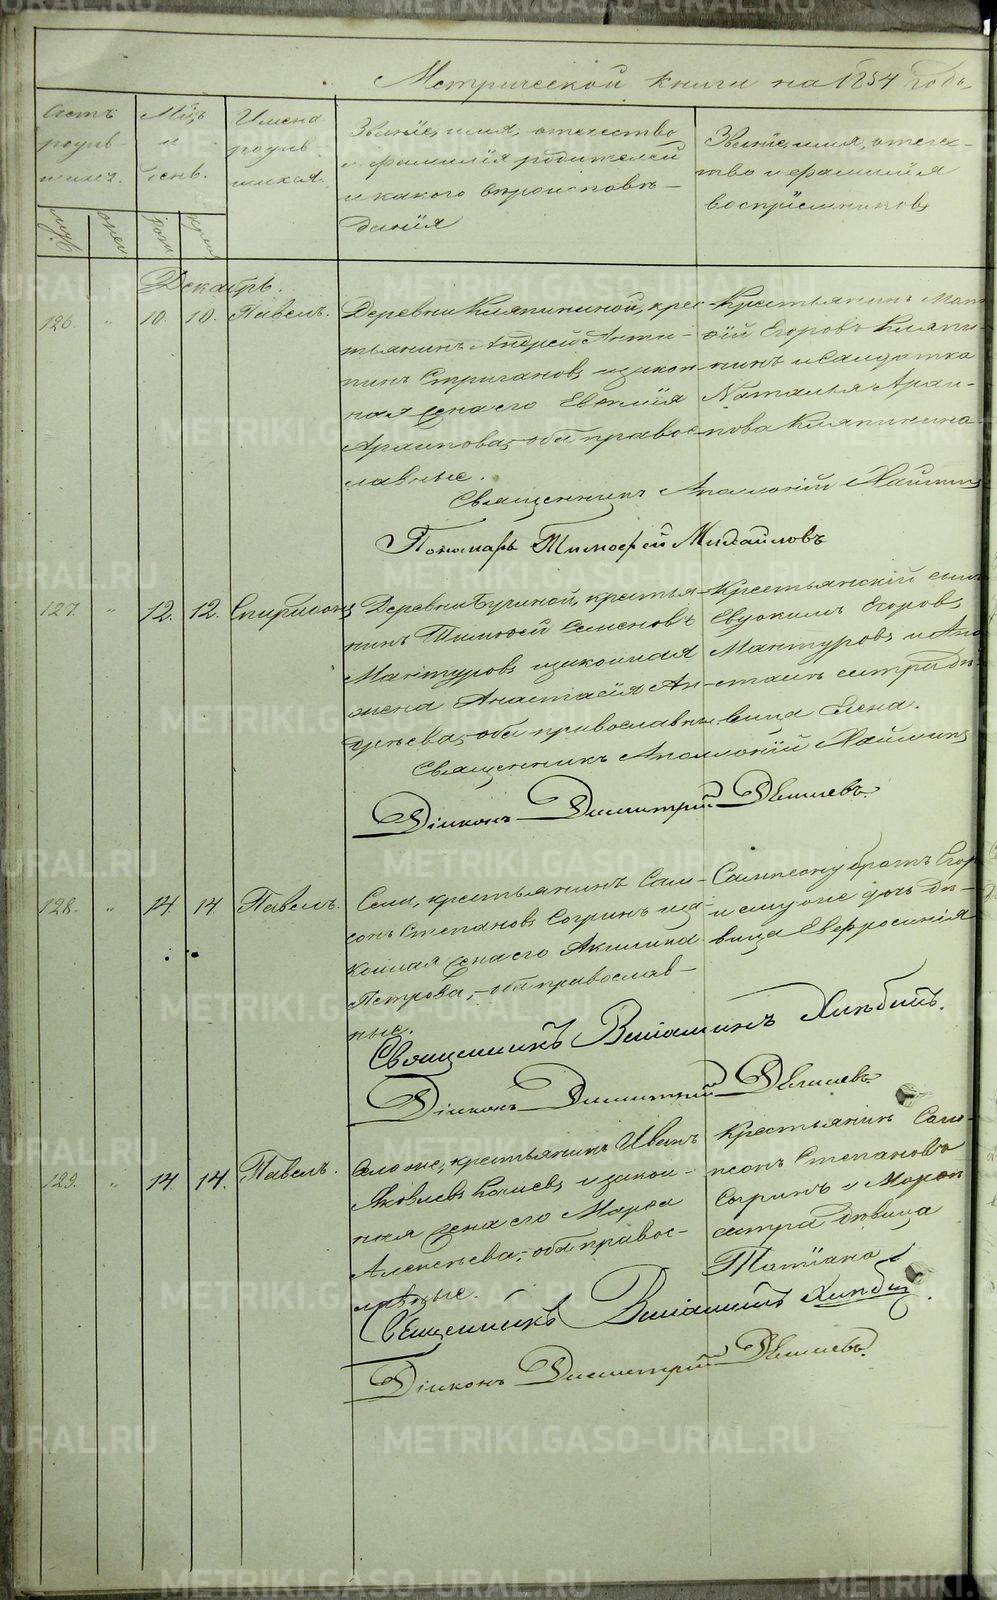 Метрической книги на 1884 годъ
Счетъ родив- шихся.
Мѣсяцъ и день.
Имена родив- шихся.
Званіе, имя, отчество
и фамилія родителей
и какого вѣроисповѣ-
данія
Званіе, имя, отече-
ство и фамилія
воспріемниковъ
муж. жен. рожд. крещ.
Декабрь.
126. " 10. 10. Павелъ.
Деревни Кляпининой, крес-
тьянинъ Андрей Анти-
пинъ Стригановъ и закон-
ная жена его Евгенія
Архипова, оба правос-
лавные.
Крестьянинъ
Егоровъ Кляпи-
нинъ и Солдатка
Наталья Архи-
пова Кляпинина
Священникъ Аполлоній
Пономарь Тимофей Михайловъ
127. " 12. 12. Спиридонъ
Деревни Бучиной, крестья-
нинъ Тимофей Семеновъ
Мантуровъ и законная
жена Анастасія Ан-
дреева, оба православны.
Крестьянскій сынъ
Евдокимъ Егоровъ
Мантуровъ и
сестра дѣ-
вица Елена.
Священникъ Аполлоній
Діаконъ Димитрій
128. " 14. 14. Павелъ.
Села, крестьянинъ Сам-
сонъ Степановъ Согринъ и за-
конная жена его Акилина
Петрова, - оба православ-
ные.
Сампсону братъ Егоръ
и ему же дочь дѣ-
вица Евфросинія
Священникъ Веніаминъ
Діаконъ Димитрій
129. " 14. 14. Павелъ.
Село же, крестьянинъ Иванъ
Яковлевъ и закон-
ная жена его Марѳа
Алексѣева, - оба правос-
лавные.
Крестьянинъ Самп-
сонъ Степановъ
Согринъ и
сестра дѣвица
Татіана
Священникъ Веніаминъ
Діаконъ Димитрій
METRIKI.GASO-URAL.RU